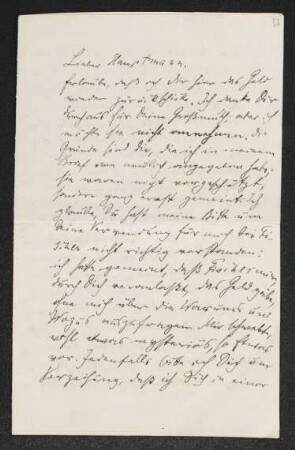 Lieber Hauptmann.
Erlaube, daß ich Dir hier das Geld
wieder zurückschicke. Ich danke Dir
durchaus für Deine Großmuth, aber ich
möchte sie nicht annehmen. Die
Gründe sind die, die ich in meinem
Brief von neulich angegeben habe;
sie waren nicht vorgeschützt,
sondern ganz ernst gemeint. Ich
glaube, Du hast meine Bitte um
Deine Verwendung für mich bei Fi-
scher nicht richtig verstanden:
ich hatte gemeint, daß Fischer mir,
durch Dich veranlaßt, das Geld gäbe,
ohne mich über die Warums und
Wozus auszufragen. Mir schwebte
wohl etwas mysteriös, so etwas
vor. Jedenfalls bitte ich Dich um
Verzeihung, daß ich Dich in einer